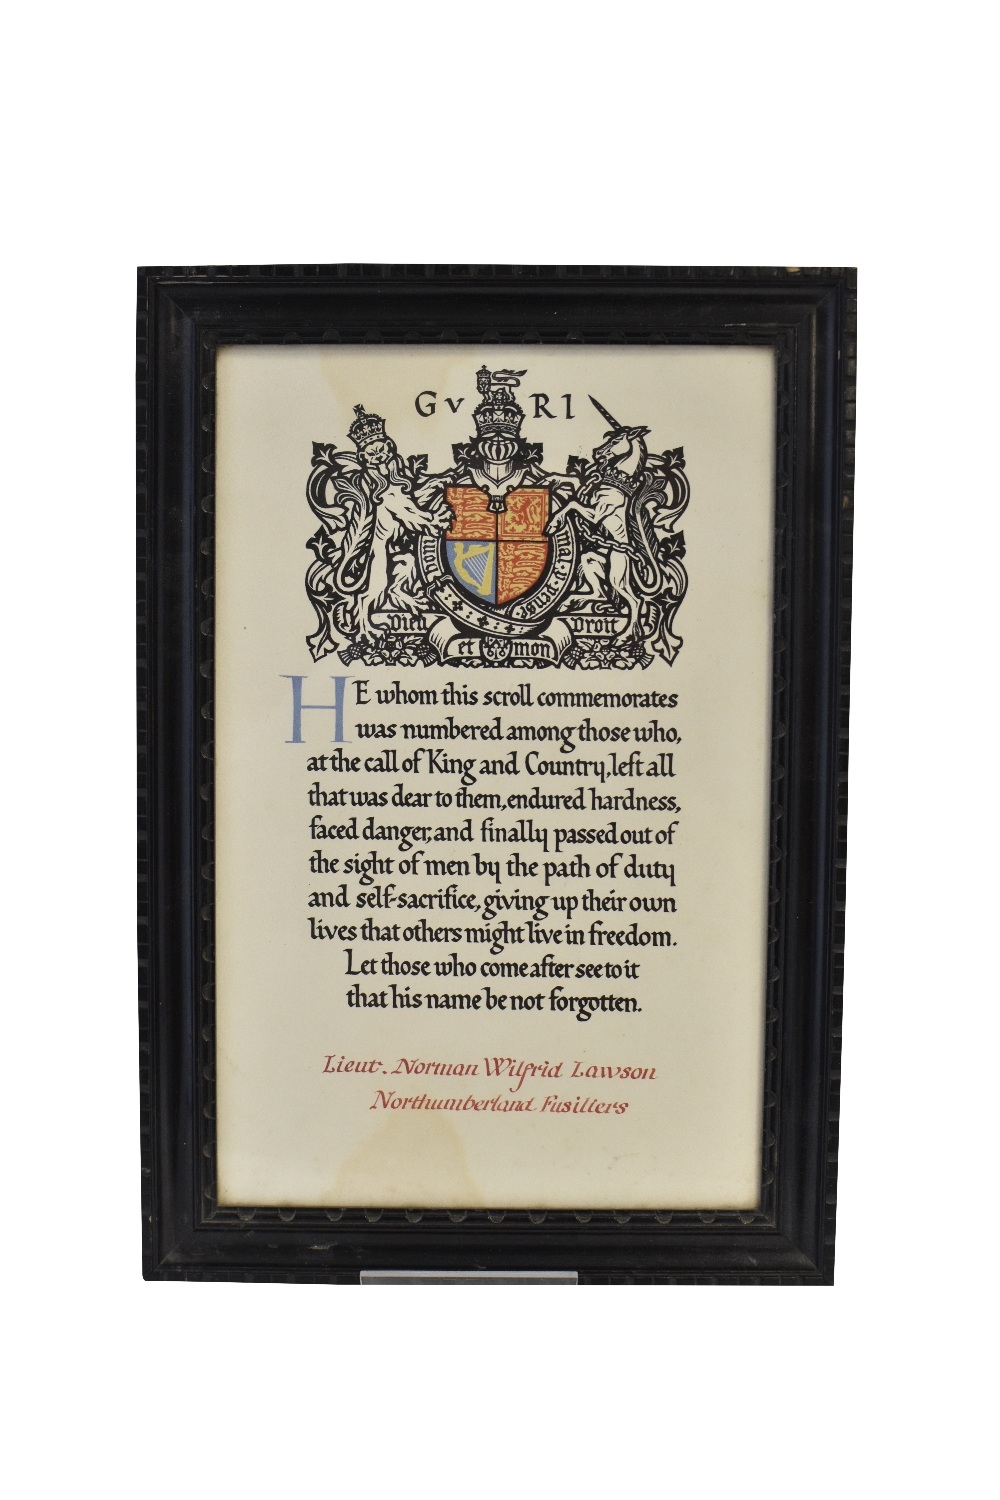 GV RI
honi mal·y·pense
Dieu Droit
et mon
HE whom this scroll commemorates
was numbered among those who,
at the call of King and Country, left all
that was dear to them, endured hardness,
faced danger, and finally passed out of
the sight of men by the path of duty
and self-sacrifice, giving up their own
lives that others might live in freedom.
Let those who come after see to it
that his name be not forgotten.
Lieut. Norman Wilfrid Lawson
Northumberland Fusiliers